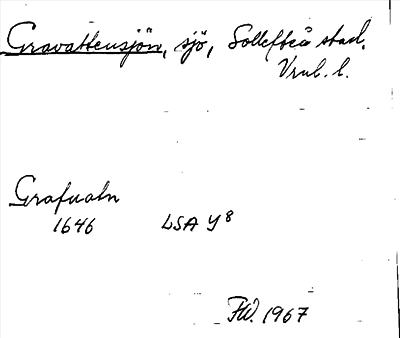 Gravattensjön, sjö, Sollefteå stad,
Vrnl. l.
Grafuatn
1646 LSA Y8
FW. 1967